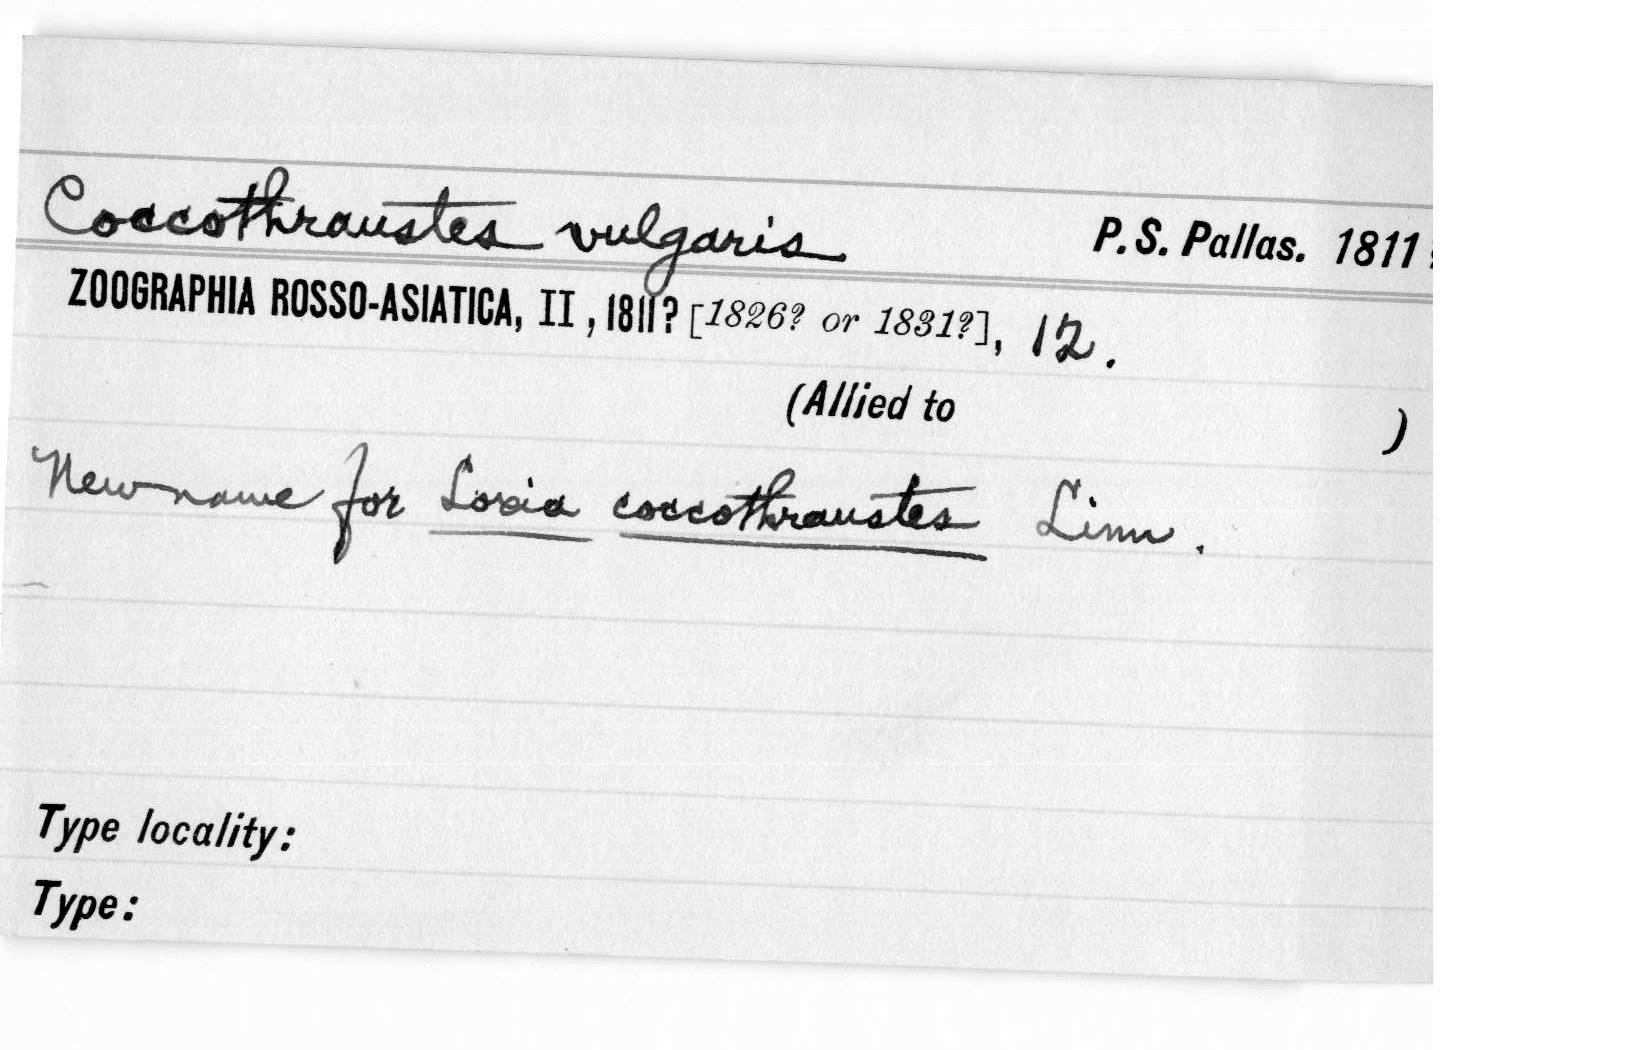 Coccothraustes vulgaris P. S. Pallas. 1811?
ZOOGRAPHIA ROSSO-ASIATICA, II, 1811? [1826? or 1831?], 12.
(Allied to )
New name for Loxia coccothraustes Linn.
Type locality:
Type: